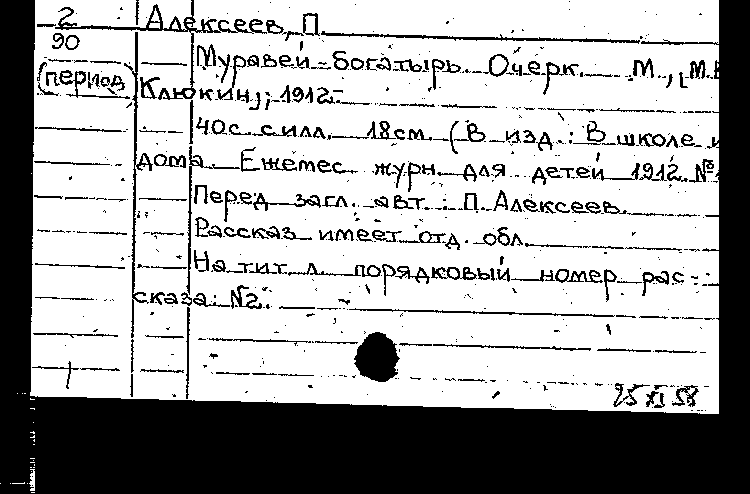 2
90
(период)
Алексеев, П.
Муравей-богатырь. Очерк. М., [М.В.
Клюкин], 1912.
40с. с илл. 18см. (В изд.: В школе и
дома. Ежемес. журн. для детей 1912 №
Перед загл. авт.: П. Алексеев.
Рассказ имеет отд. обл.
На тит. л. порядковый номер рас-
сказа: №2.
1
25 XI 58